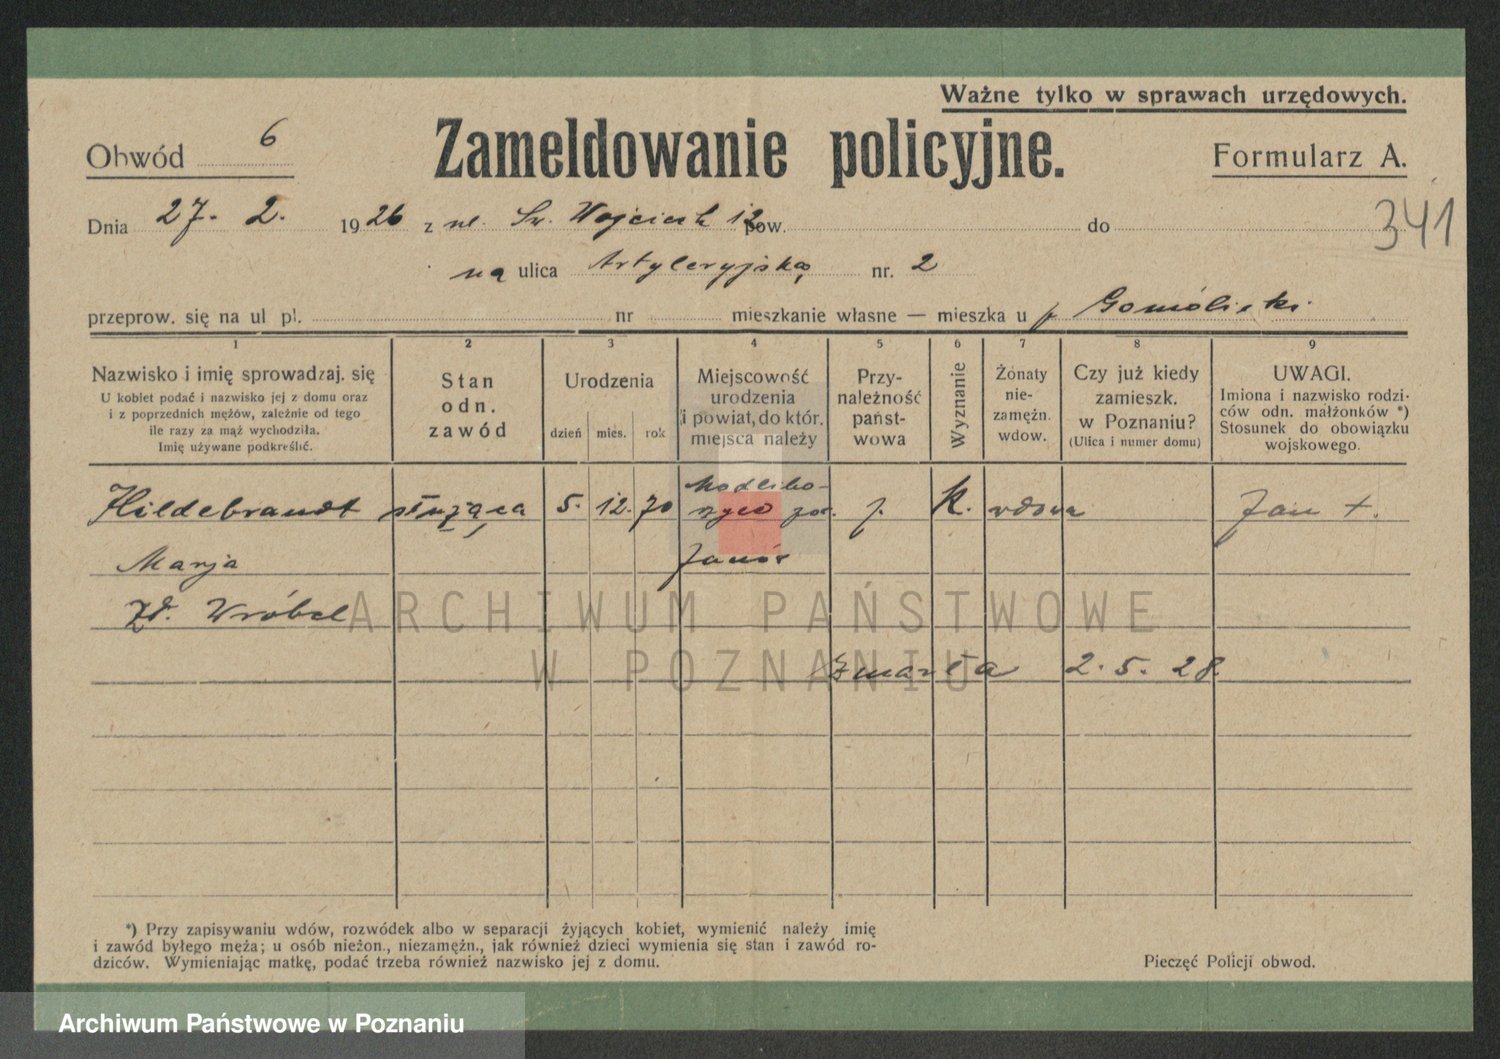 Ważne tylko w sprawach urzędowych.
Obwód 6
Zameldowanie policyjne.
Formularz A.
Dnia 27. 2. 1926 z ul. Św. Wojciech 12 pow. do
341
na ulica Artyleryjską nr. 2
przeprow. się na ul pl. nr mieszkanie własne — mieszka u p. Gomólicki
1 2 3 4 5 6 7 8 9
Nazwisko i imię sprowadzaj. się
U kobiet podać i nazwisko jej z domu oraz
i z poprzednich mężów, zależnie od tego
ile razy za mąż wychodziła.
Imię używane podkreślić.
Stan
odn.
zawód
Urodzenia
dzień mies. rok
Miejscowość
urodzenia
i powiat, do któr.
miejsca należy
Przy-
należność
państ-
wowa
Wyznanie
Żonaty
nie-
zamężn.
wdow.
Czy już kiedy
zamieszk.
w Poznaniu?
(Ulica i numer domu)
UWAGI.
Imiona i nazwisko rodzi-
ców odn. małżonków *)
Stosunek do obowiązku
wojskowego.
Hildebrandt służąca 5. 12. 70 p. k. wdowa Jan +.
Marja
Zd. Wróbel
zmarła 2. 5. 28.
ARCHIWUM PAŃSTWOWE
W POZNANIU
*) Przy zapisywaniu wdów, rozwódek albo w separacji żyjących kobiet, wymienić należy imię
i zawód byłego męża; u osób nieżon., niezamężn., jak również dzieci wymienia się stan i zawód ro-
dziców. Wymieniając matkę, podać trzeba również nazwisko jej z domu.
Pieczęć Policji obwod.
Archiwum Państwowe w Poznaniu